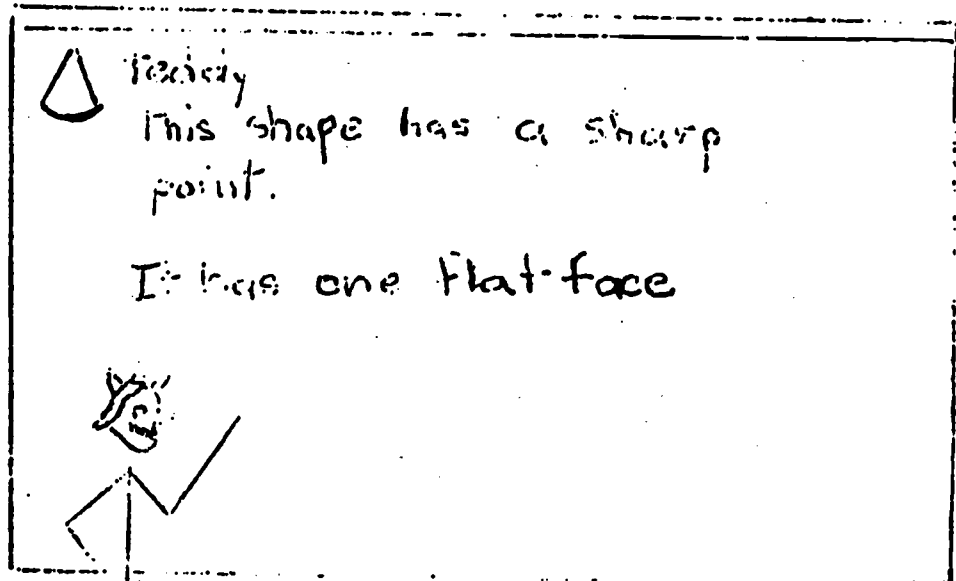 This shape has a sharp
point.
It has one flat face